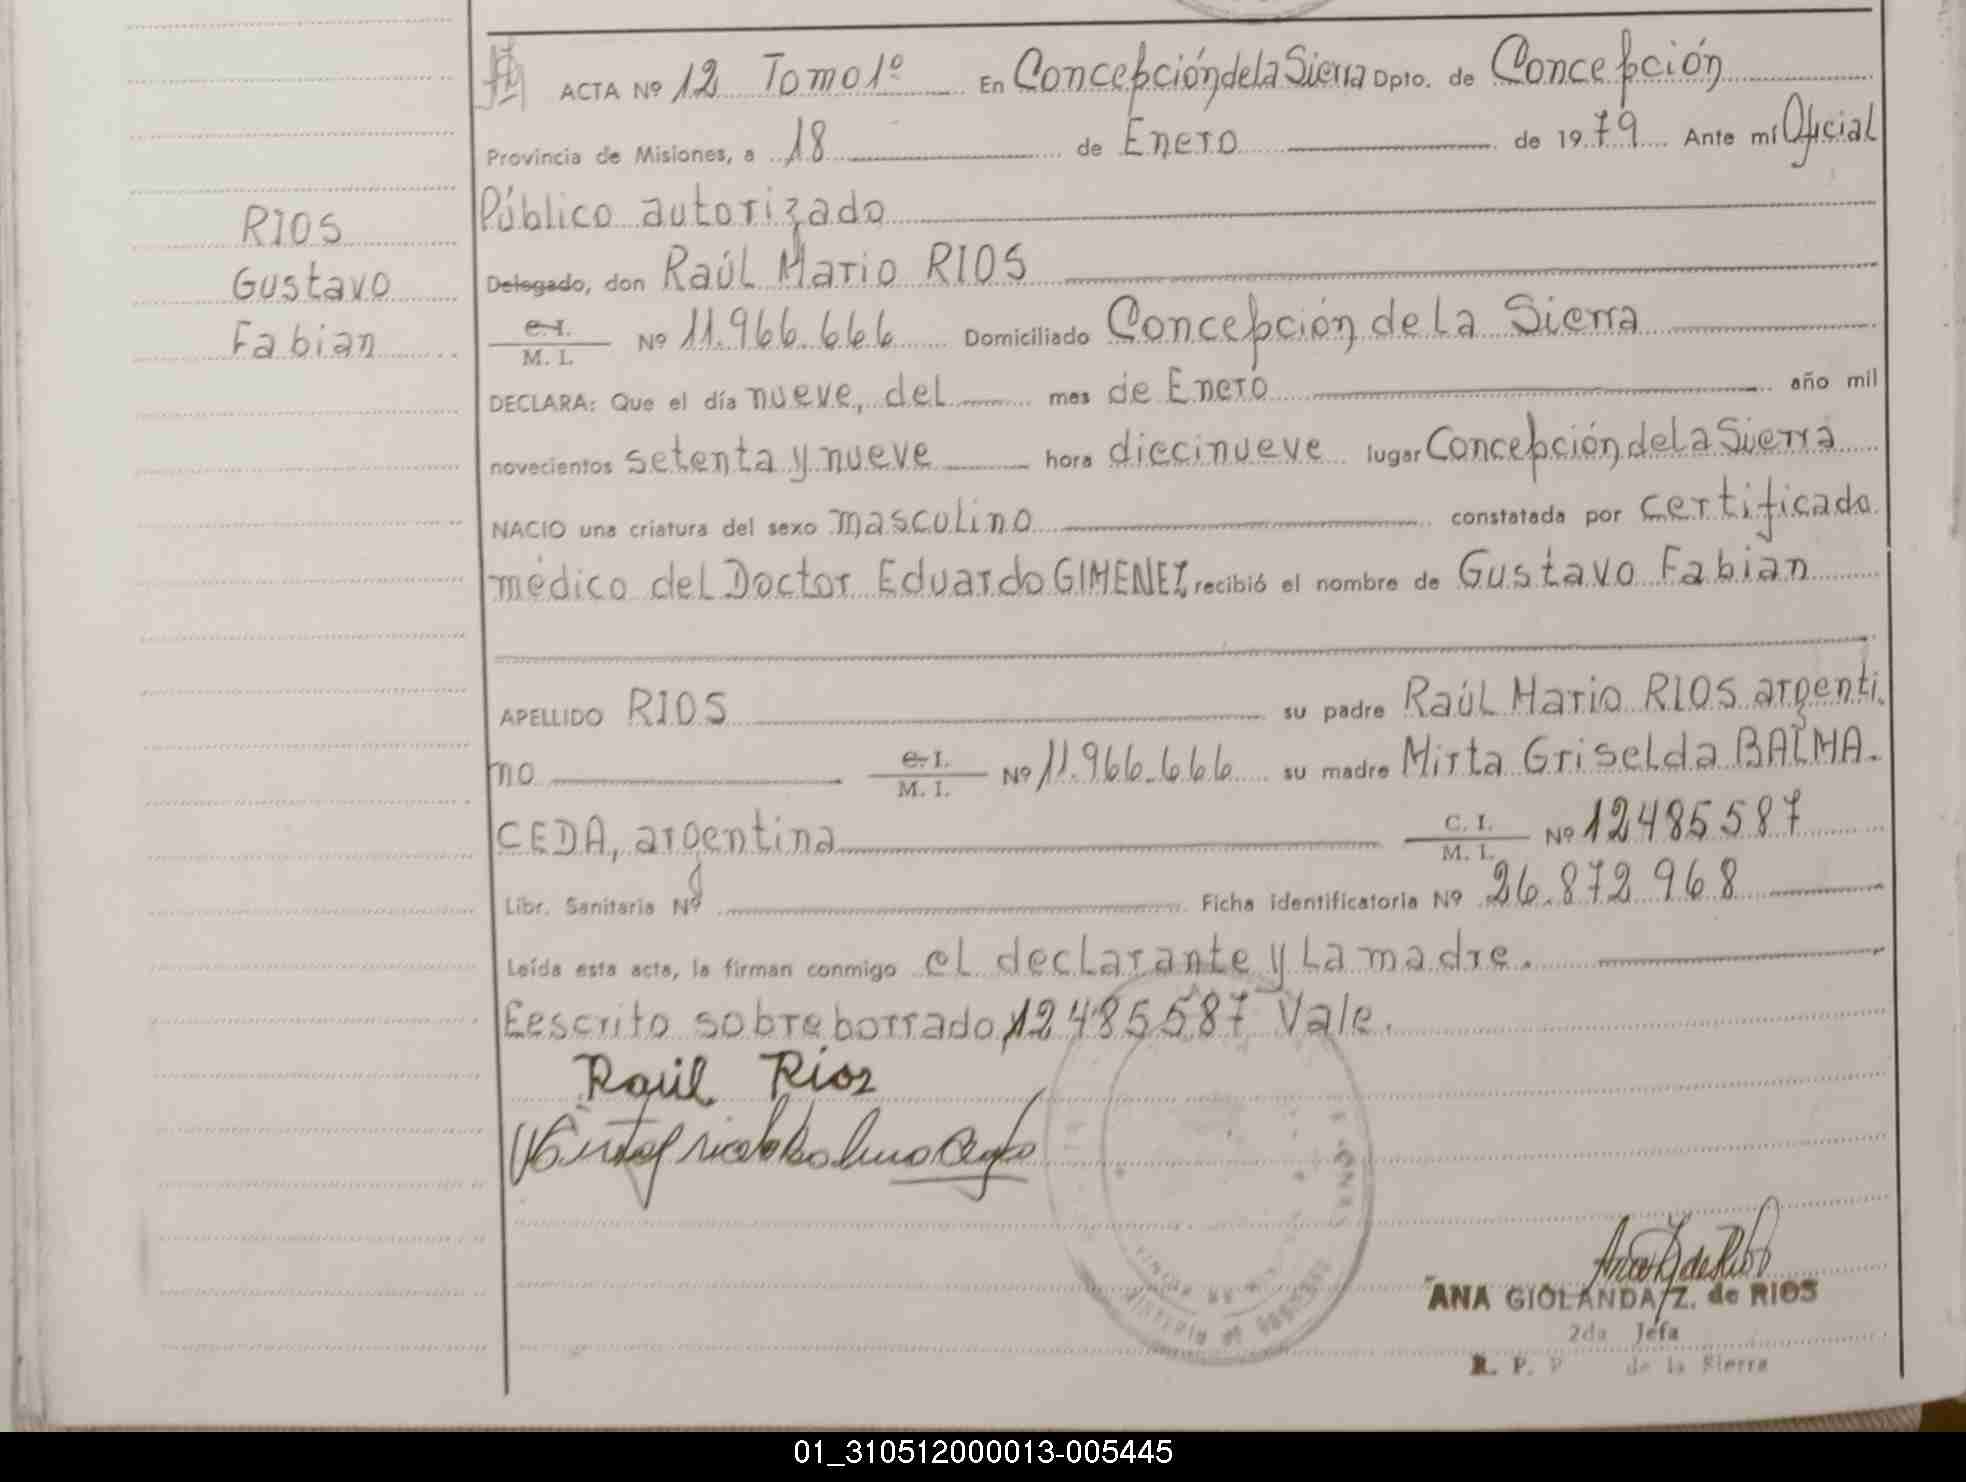 ACTA Nº 12 Tomo 1º En Concepción de la Sierra Dpto. de Concepción
Provincia de Misiones, a 18 de Enero de 1979 Ante mí Oficial
Público autorizado
RIOS
Gustavo
Fabian
Delegado, don Raúl Mario RIOS
C.I. M. I. Nº 11.966.666 Domiciliado Concepción de la Sierra
DECLARA: Que el día nueve, del mes de Enero año mil
novecientos setenta y nueve hora diecinueve lugar Concepción de la Sierra
NACIO una criatura del sexo masculino constatada por certificado
médico del Doctor Eduardo GIMENEZ, recibió el nombre de Gustavo Fabian
APELLIDO RIOS su padre Raúl Mario RIOS argenti.
no C.I. M. I. Nº 11.966.666 su madre Mirta Griselda BALMA.
CEDA, argentina C. I. M. I. Nº 12485587
Libr. Sanitaria Nº Ficha identificatoria Nº 26.872.968
Leída esta acta, la firman conmigo el declarante y la madre.
Eescrito sobre borrado, 12485587 Vale.
Raúl Rios
ANA GIOLANDA Z. de RIOS
2da Jefa
R. P. P de la Sierra
01_310512000013-005445